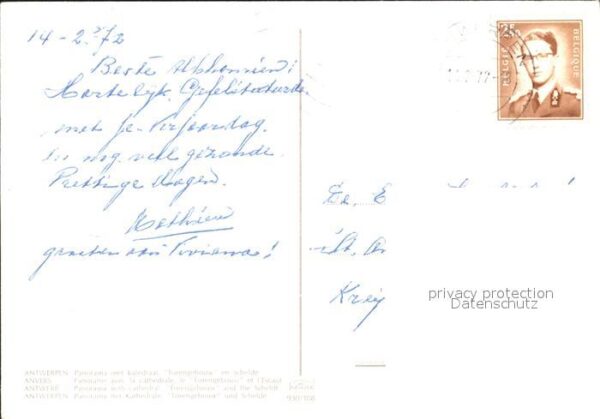 14-2-72
Beste Alphonsien:
Hartelijk Gefeliciteerd
met je Verjaardag.
en nog veel gezonde
Prettige dagen.
Mathieu
groeten aan Viviane!
2F
BELGIE BELGIQUE
De. E
St. Or
Krei
privacy protection
Datenschutz
ANTWERPEN Panorama met katedraal, "Torengebouw" en Schelde
ANVERS Panorama avec la cathédrale, le "Torengebouw" et l'Escaut
ANTWERP Panorama with Cathedral, "Torengebouw" and the Scheldt
ANTWERPEN Panorama mit Kathedrale, "Torengebouw" und Schelde